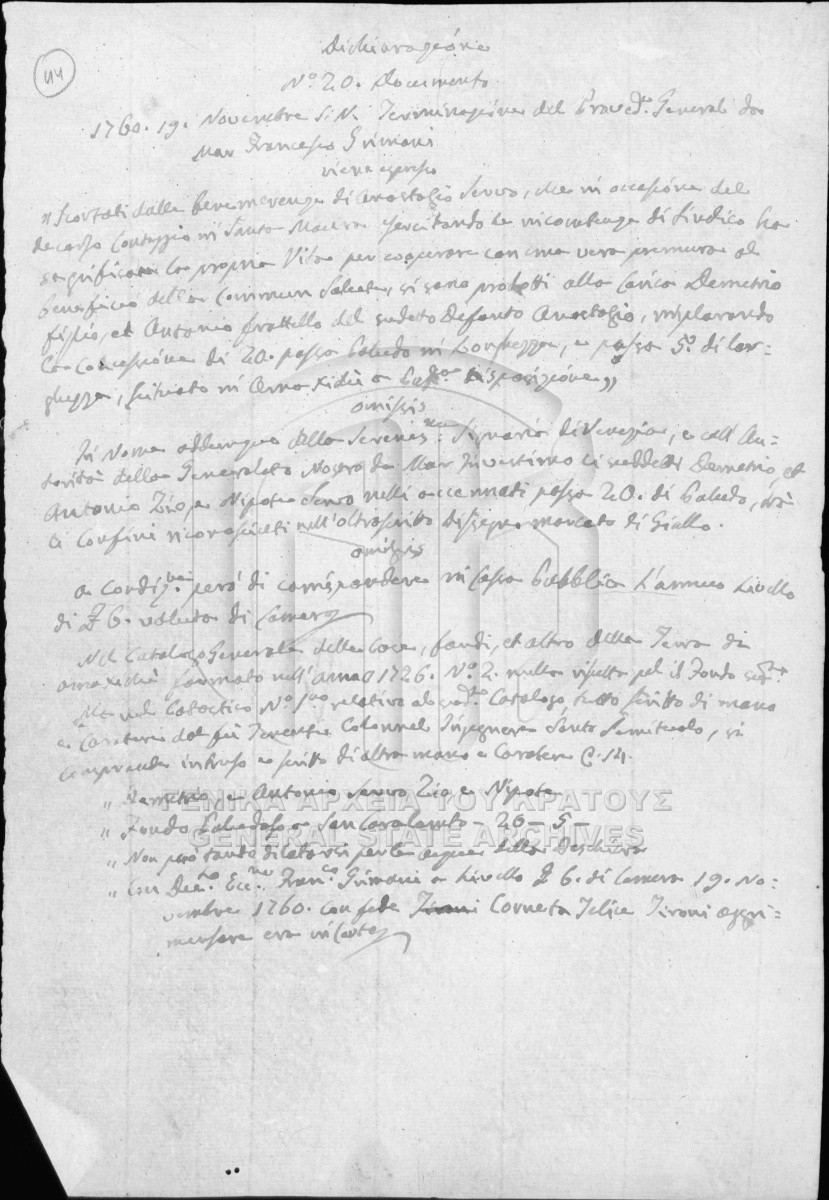 44
Dichiarazione
N.º 20. Documento
1760. 19. Novembre S.N. Terminazione del Proved.r General da
Mar Francesco Grimani
viene espresso
„ Scortati dalla benemerenza di Anastasio Servo, che in occasione del
decorso Contaggio in Santa Maura esercitando le incombenze di Sindico ha
sagrificata la propria Vita per cooperare con una vera premura al
beneficio della commun Salute, si sono prodotti alla Carica Demetrio
figlio, et Antonio frattello del sudetto defonto Anastasio, implorando
la concessione di 20. passa Paludo in longhezza, e passa 5. di lar-
ghezza, situato in Amaxichi a disposizione „
omissis
In Nome addunque della Serenis.ma Signoria di Venezia, e coll'Au-
torità della Generalato Nostro da Mar Investimo li suddetti Demetrio, et
Antonio Zio, e Nipote Servo nelli accennati passa 20. di Paludo, trà
li Confini riconosciuti nell'oltroscritto Dissegno marcato di Giallo.
omissis
a condiz.ne però di corrispondere in Cassa Pubblica l'annuo Livello
di 6. valuta di Camera
Nel Catalogo Generale delle Case, fondi, et altro della Terra di
Amaxichi formato nell'anno 1726. N.º 2. nulla risulta pel il Fondo
Ma nel Catastico N.º relativo al Catalogo, tutto scritto di mano
e Carattere del fù Tenente Colonnel Ingegner Santo Semitecolo, si
comprende intruso e scritto di altra mano e Carattere C. 54.
„ Demetrio e Antonio Servo Zio e Nipote
„ Fondo Paludoso a San Caralambo – 20 – 5 –
„ Non però tanto dilatarsi per le acque della Peschiera
„ Con Dec.to Ecc.mo Fran.co Grimani a Livello 6. di Camera 19. No-
vembre 1760. con fede Corneta Felice Tironi aggri-
mensore era in Carte
ΓΕΝΙΚΑ ΑΡΧΕΙΑ ΤΟΥ ΚΡΑΤΟΥΣ
GENERAL STATE ARCHIVES